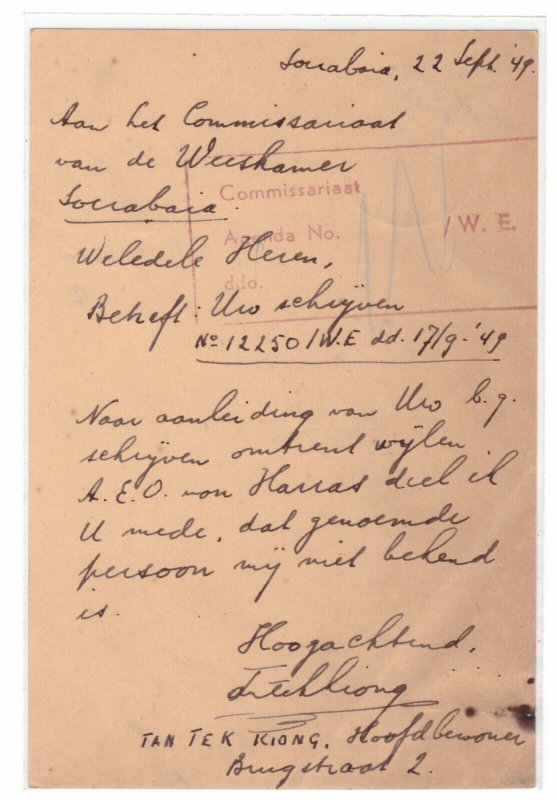 Soerabaia, 22 Sept. '49.
Aan het Commissariaat
van de Weeskamer
Soerabaia.
Commissariaat
Agenda No. /W. E.
ddo.
Weledele Heren,
Betreft: Uw schrijven
No 12250/W.E dd. 17/9-'49
Naar aanleiding van Uw b.g.
schrijven omtrent wijlen
A.E.O. von Harras deel ik
U mede, dat genoemde
persoon mij niet bekend
is.
Hoogachtend,
TAN TEK KIONG, Hoofdbewoner
Brugstraat 2.